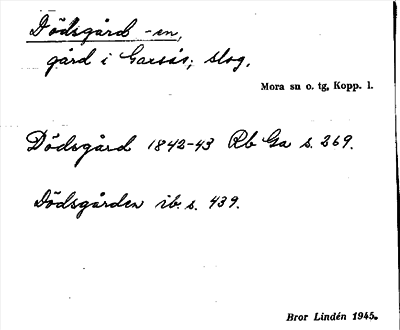 Dödsgård -en,
gård i Garsås; slog.
Mora sn o. tg, Kopp. l.
Dödsgård 1842-43 Rb Ga s. 269.
Dödsgården ib. s. 439.
Bror Lindén 1945.